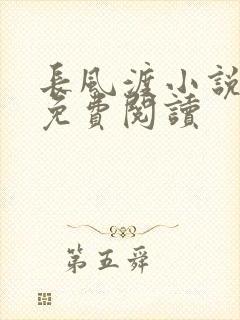 長風渡小說
免費閱讀
第五舜